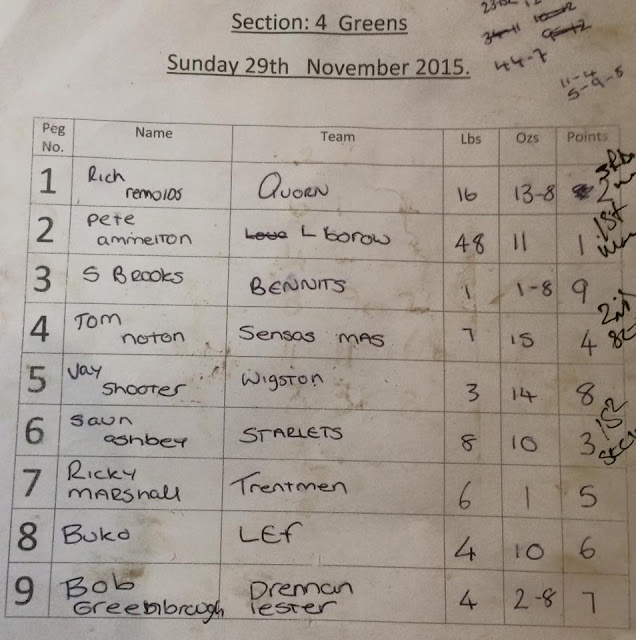 Section: 4 Greens
Sunday 29th November 2015.
44-7
11-4
5-9-5
Peg No. Name Team Lbs Ozs Points
1 Rich remolds Quorn 16 13-8 2 3RD
2 Pete ammerton L borow 48 11 1 1ST
3 S Brooks BENNITS 1 1-8 9
4 Tom noton Sensas mas 7 15 4 2nd
5 Jay Shooter Wigston 3 14 8
6 Saun ashbey STARLETS 8 10 3 1st sec
7 Ricky MARSHall Trentmen 6 1 5
8 Buko LEf 4 10 6
9 Bob Greenbrough Dreman lester 4 2-8 7